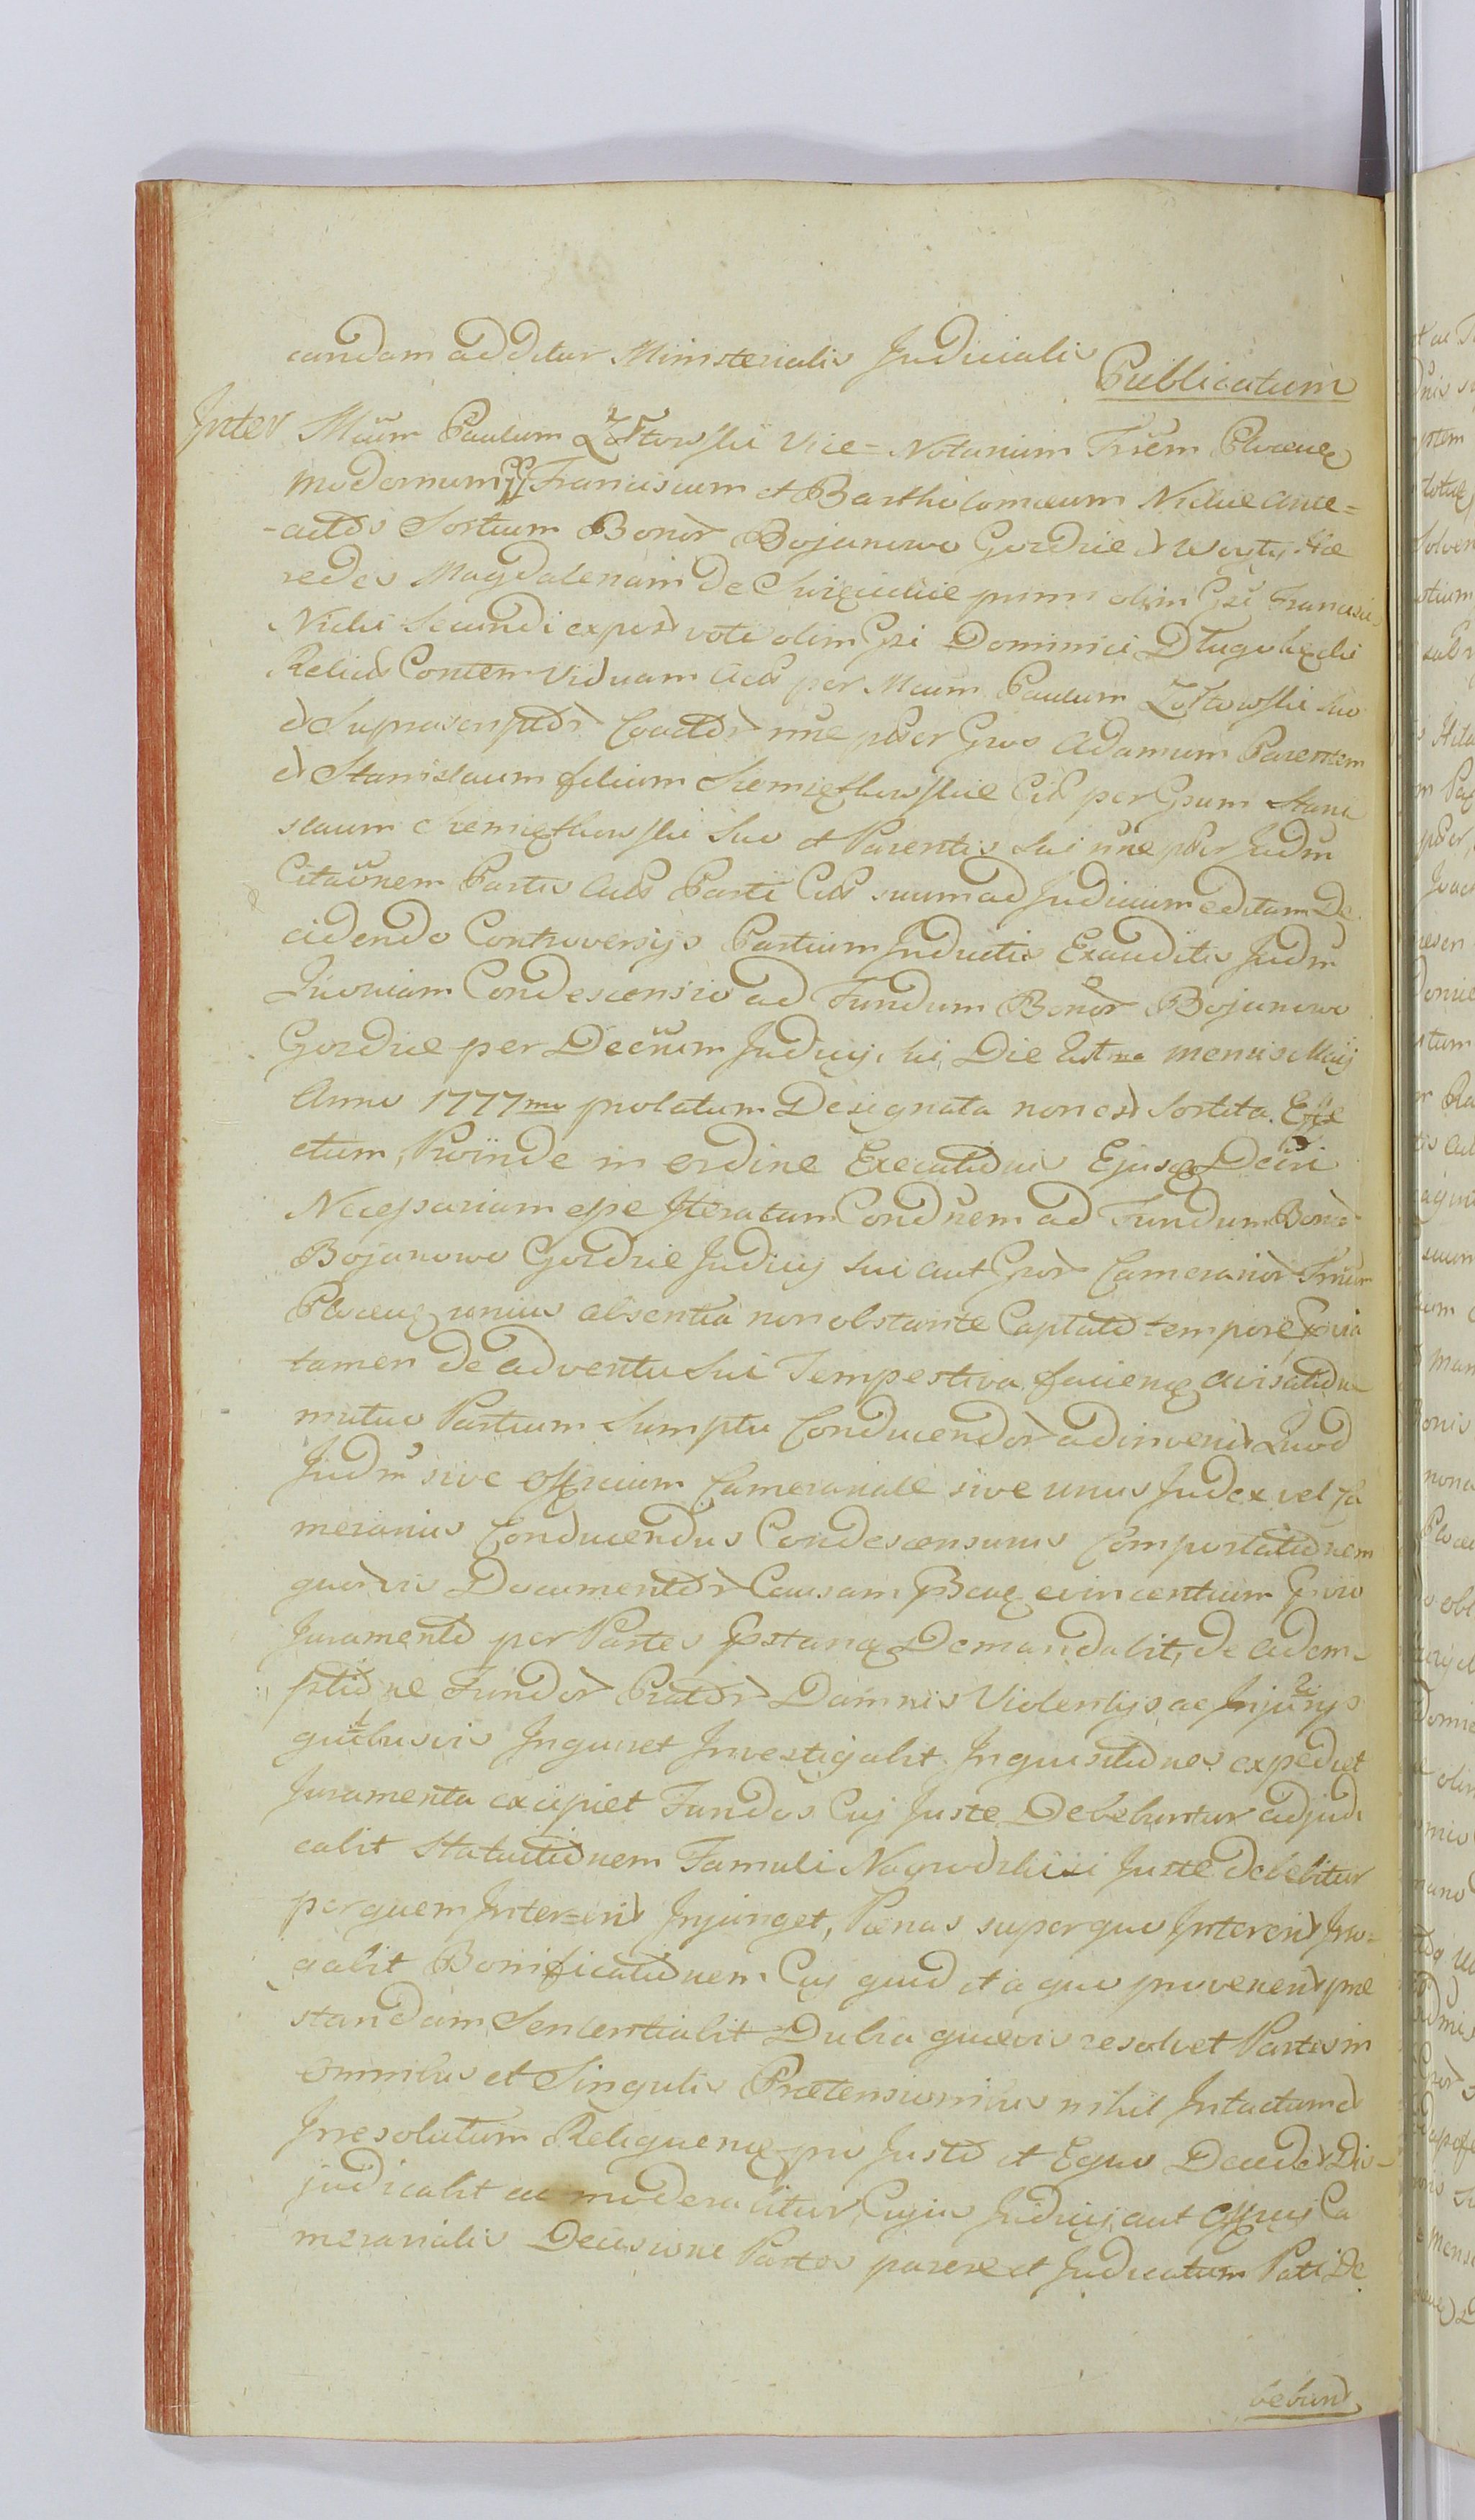 candam additur Ministerialis Judicialis
Publicatum
Inter Mcum Paulum Zołtowski Vice=Notarium Trrem Plocen
modernum Franciscum et Bartholomæum Nickie ante=
-actos Sortium Bonor Bojanowo Gordzie et Hæ
redes Magdalenam De primi olim Gsi Francisci
Nicki Secundi voti olim Gsi Dominici Długołęcki
Relictam Contem Viduam Acts per Mcum Paulum Zołtowski suo
et Suprascriptor Coactor nne pter Gnos Adamum Parentem
et Stanislaum filium Siemiątkowskie Cit per Gsum Stani
slaum Siemiątkowski suo et Parentis sui nne pter Judm
Citaonem Partis Acts Parti Cit suum ad Judicium editam De
cidendo Controversys Partium Inductis Exauditis Judm
Quoniam Condescensio ad Fundum Bonor Bojanowo
Gordzie per Decrum Judicij sui Die mensis Maij
Anno 1777mo prolatum Designata non est Sortita Effe
ctum, Proinde in ordine Executionis Ejusq Decri
Necessariam esse Iteratam Condnem ad Fundum Bonor
Bojanowo Gordzie Judicij sui aut Gror Camerarior Trrium
Plocen unius absentia non obstante Captato tempore Prævia
tamen De adventu Sui Tempestiva facien avisatione
mutuo Partium Sumptu Conducendor adinvenit Quod
Judm sive Officium Camerariale sive unus Judex vel Ca
merarius Conducendus Condescensurus Comportationem
quorvis Documentor Causam Psen evincentium Prævio
Juramento per Partes Pstan Demandabit, de Adem-
ptione Fundor Prator Damnis Violentijs ac Injurijs
quibusvis Inquiret Investigabit Inquisitiones expediet
Juramenta excipiet Fundos Cuj Juste Debebuntur adjudi
cabit Statuitionem Famuli Nagrodzkiei Juste debebitur
per quem Intererit Injunget, Pœnas super quo Intererit Irro-
gabit Bonificationem Cuj quid et a quo provenerit præ
standam Sententiabit Dubia quævis resolvet Partes in
omnibus et Singulis Prætensionibus nihil Intactum et
Irresolutum Relinquen pro Justo et Equo Decidet Di-
judicabit ac moderabitur, Cujus Judicij aut Officij Ca
merarialis Decisione Partes parere et Judicatum Pati De
bebunt